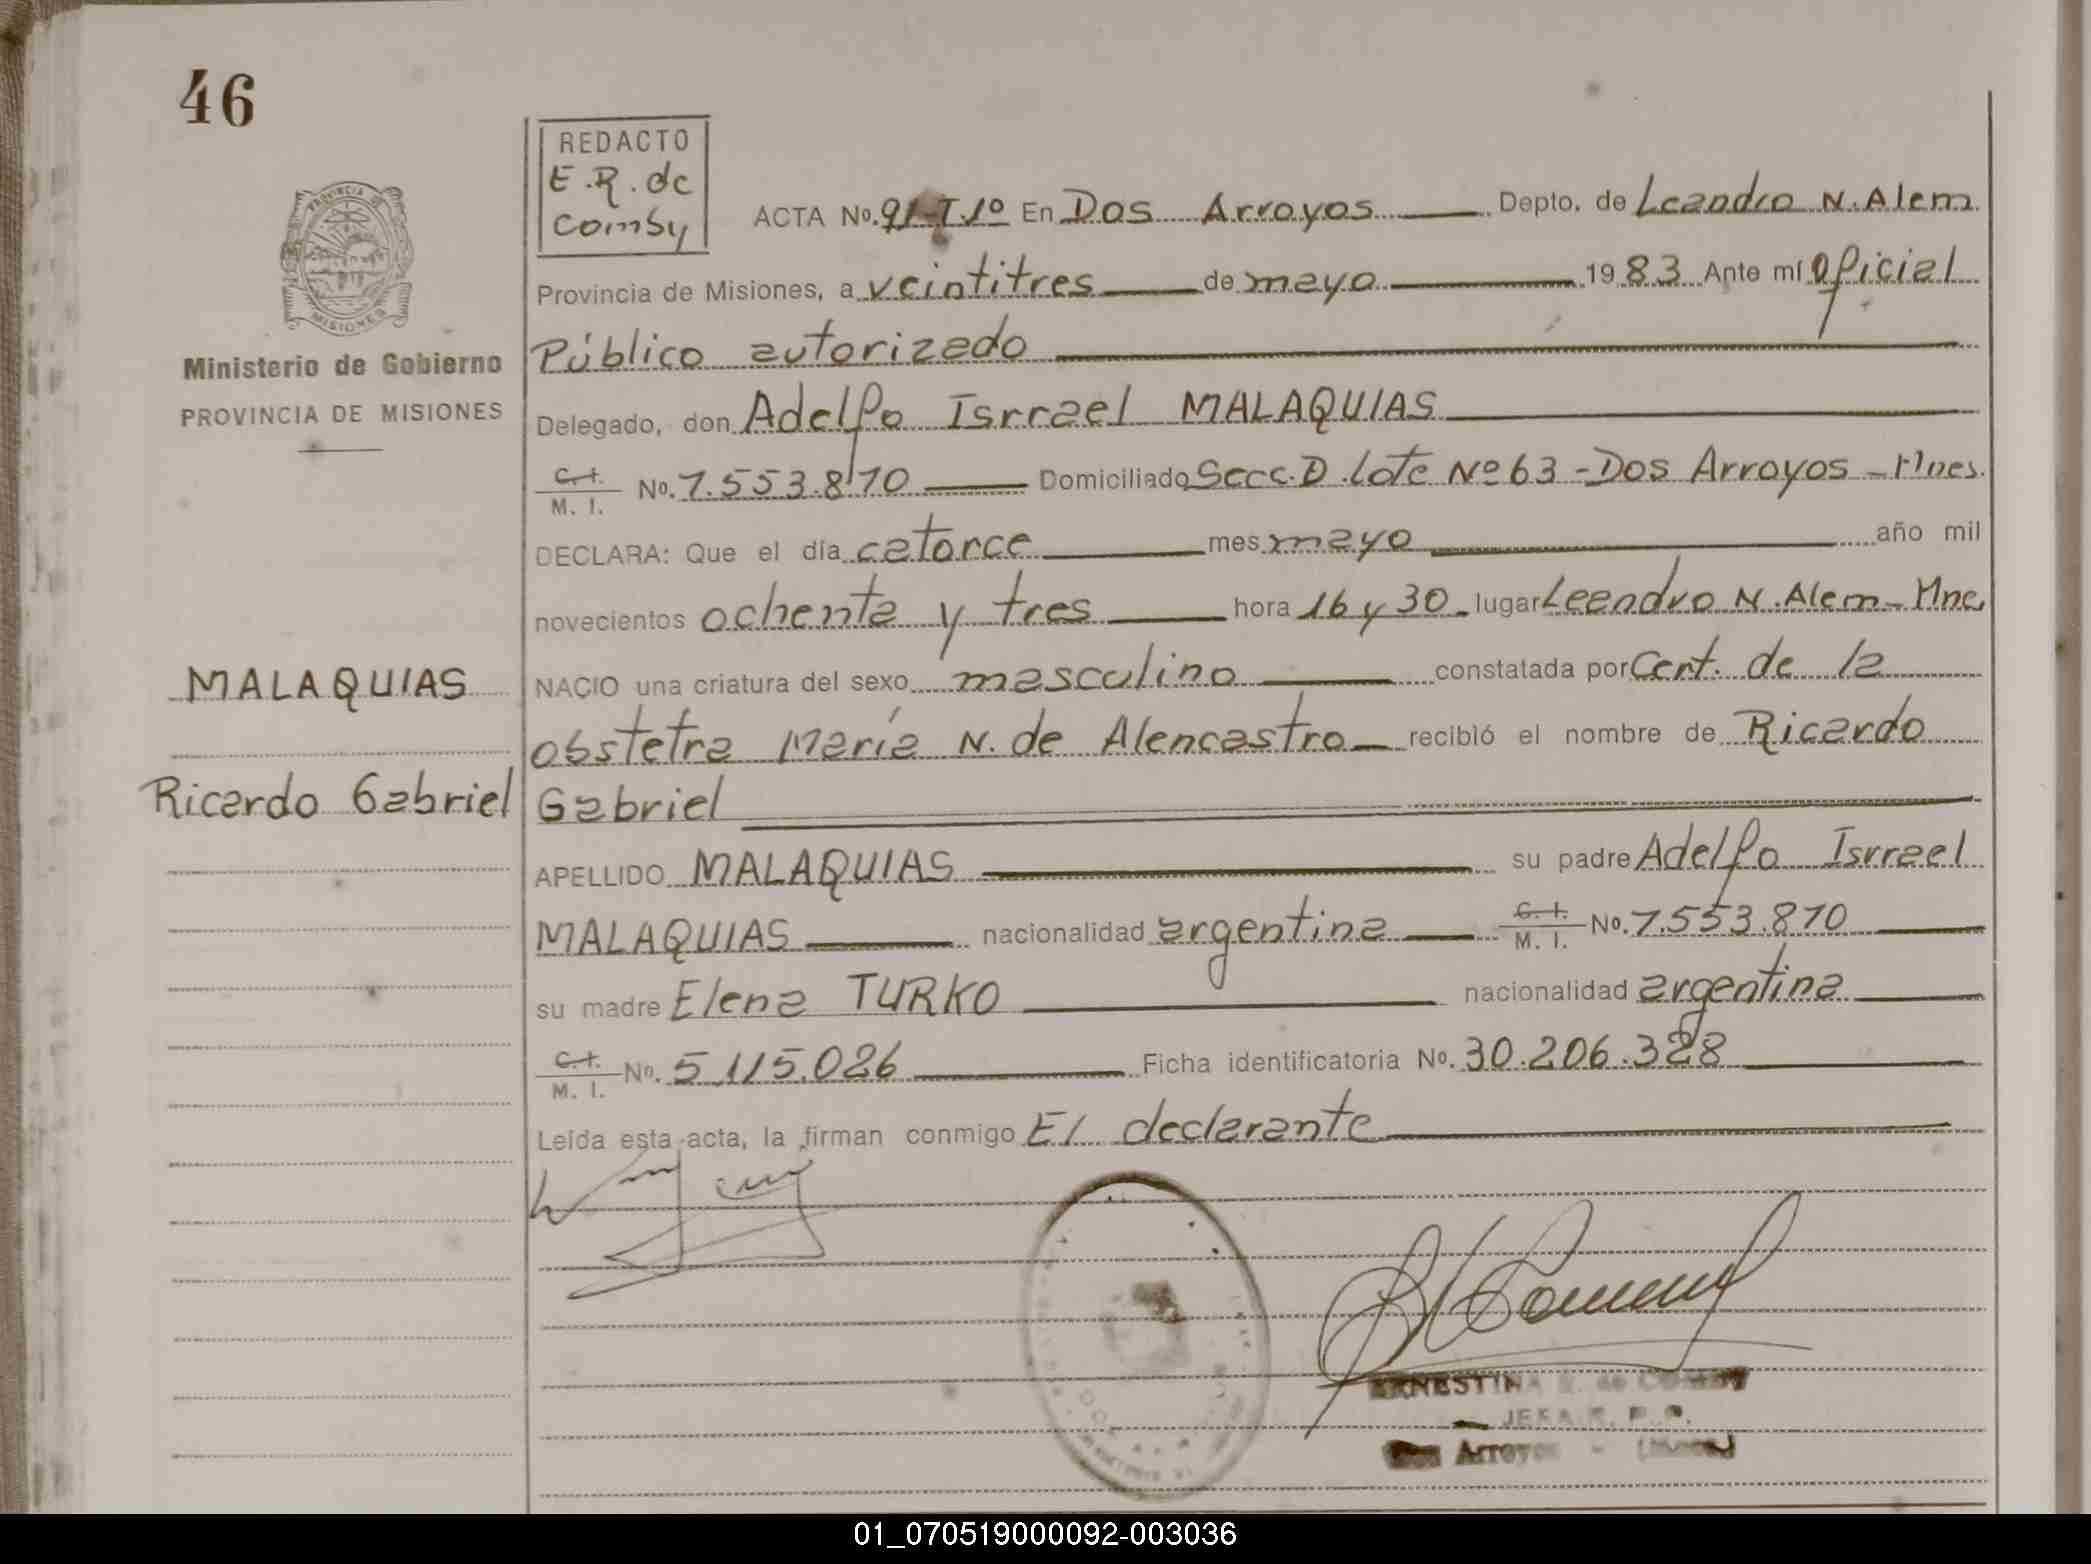 46
REDACTO
E.R. de
Comby
ACTA No. 91-T.1º En Dos Arroyos Depto. de Leandro N. Alem
Provincia de Misiones, a veintitres de mayo 1983 Ante mí Oficial
Público autorizado
Delegado, don Adelfo Isrrael MALAQUIAS
C.I. / M. I. No. 7.553.870 Domiciliado Secc. D. Lote Nº 63 - Dos Arroyos - Mnes.
DECLARA: Que el día catorce mes mayo año mil
novecientos ochenta y tres hora 16 y 30 lugar Leandro N. Alem - Mnes
NACIO una criatura del sexo masculino constatada por Cert. de la
obstetra María N. de Alencastro recibió el nombre de Ricardo
Gabriel
APELLIDO MALAQUIAS su padre Adelfo Isrrael
MALAQUIAS nacionalidad argentina C.I. / M. I. No. 7.553.870
su madre Elena TURKO nacionalidad argentina
C.I. / M. I. No. 5.115.026 Ficha identificatoria No. 30.206.328
Leída esta acta, la firman conmigo El declarante
PROVINCIA DE
MISIONES
Ministerio de Gobierno
PROVINCIA DE MISIONES
MALAQUIAS
Ricardo Gabriel
ERNESTINA R. de COMBY
JEFA R. P. P.
Dos Arroyos - (Mnes)
01_070519000092-003036